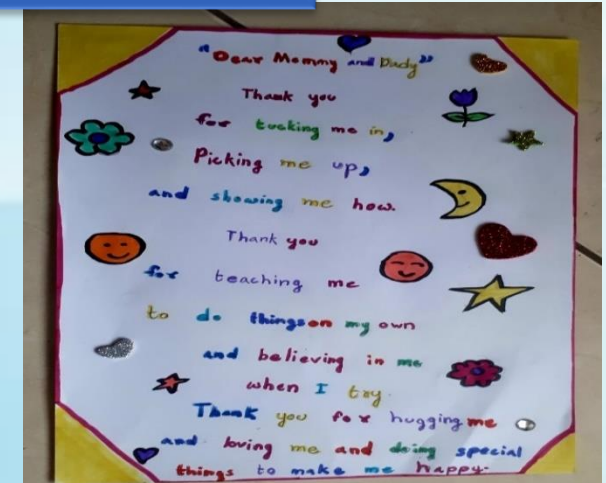 "Dear Mommy and Dady"
Thank you
for tucking me in,
Picking me up,
and showing me how.
Thank you
for teaching me
to do things on my own
and believing in me
when I try.
Thank you for hugging me
and loving me and doing special
things to make me happy.